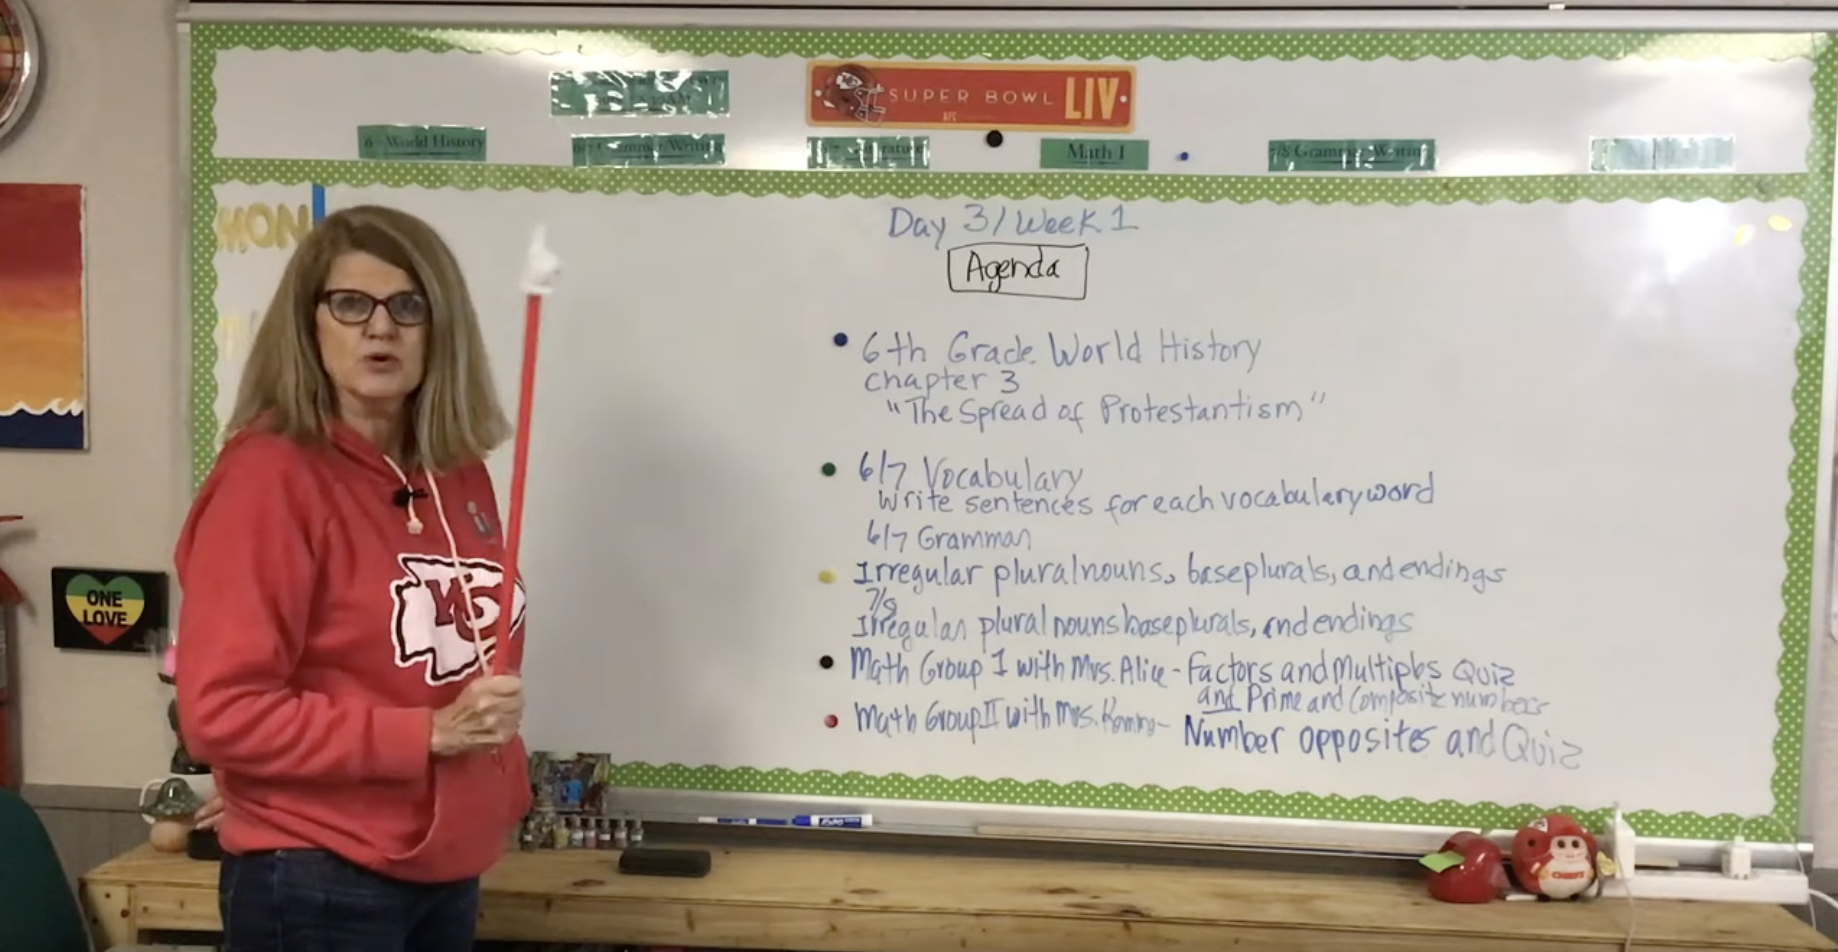 SUPER BOWL LIV
AFC
6 World History
Grammar/Writing
Math I
7/8 Grammar/Writing
MON
Day 3/Week 1
Agenda
6th Grade World History
chapter 3
"The Spread of Protestantism"
6/7 Vocabulary
Write sentences for each vocabulary word
6/7 Grammar
Irregular plural nouns, base plurals, and endings
7/8
Irregular plural nouns base plurals, and endings
Math Group I with Mrs. Alice - Factors and Multiples Quiz
and Prime and Composite numbers
Math Group II with Mrs. - Number opposites and Quiz
ONE
LOVE
KC
EXPO
CHIEFS